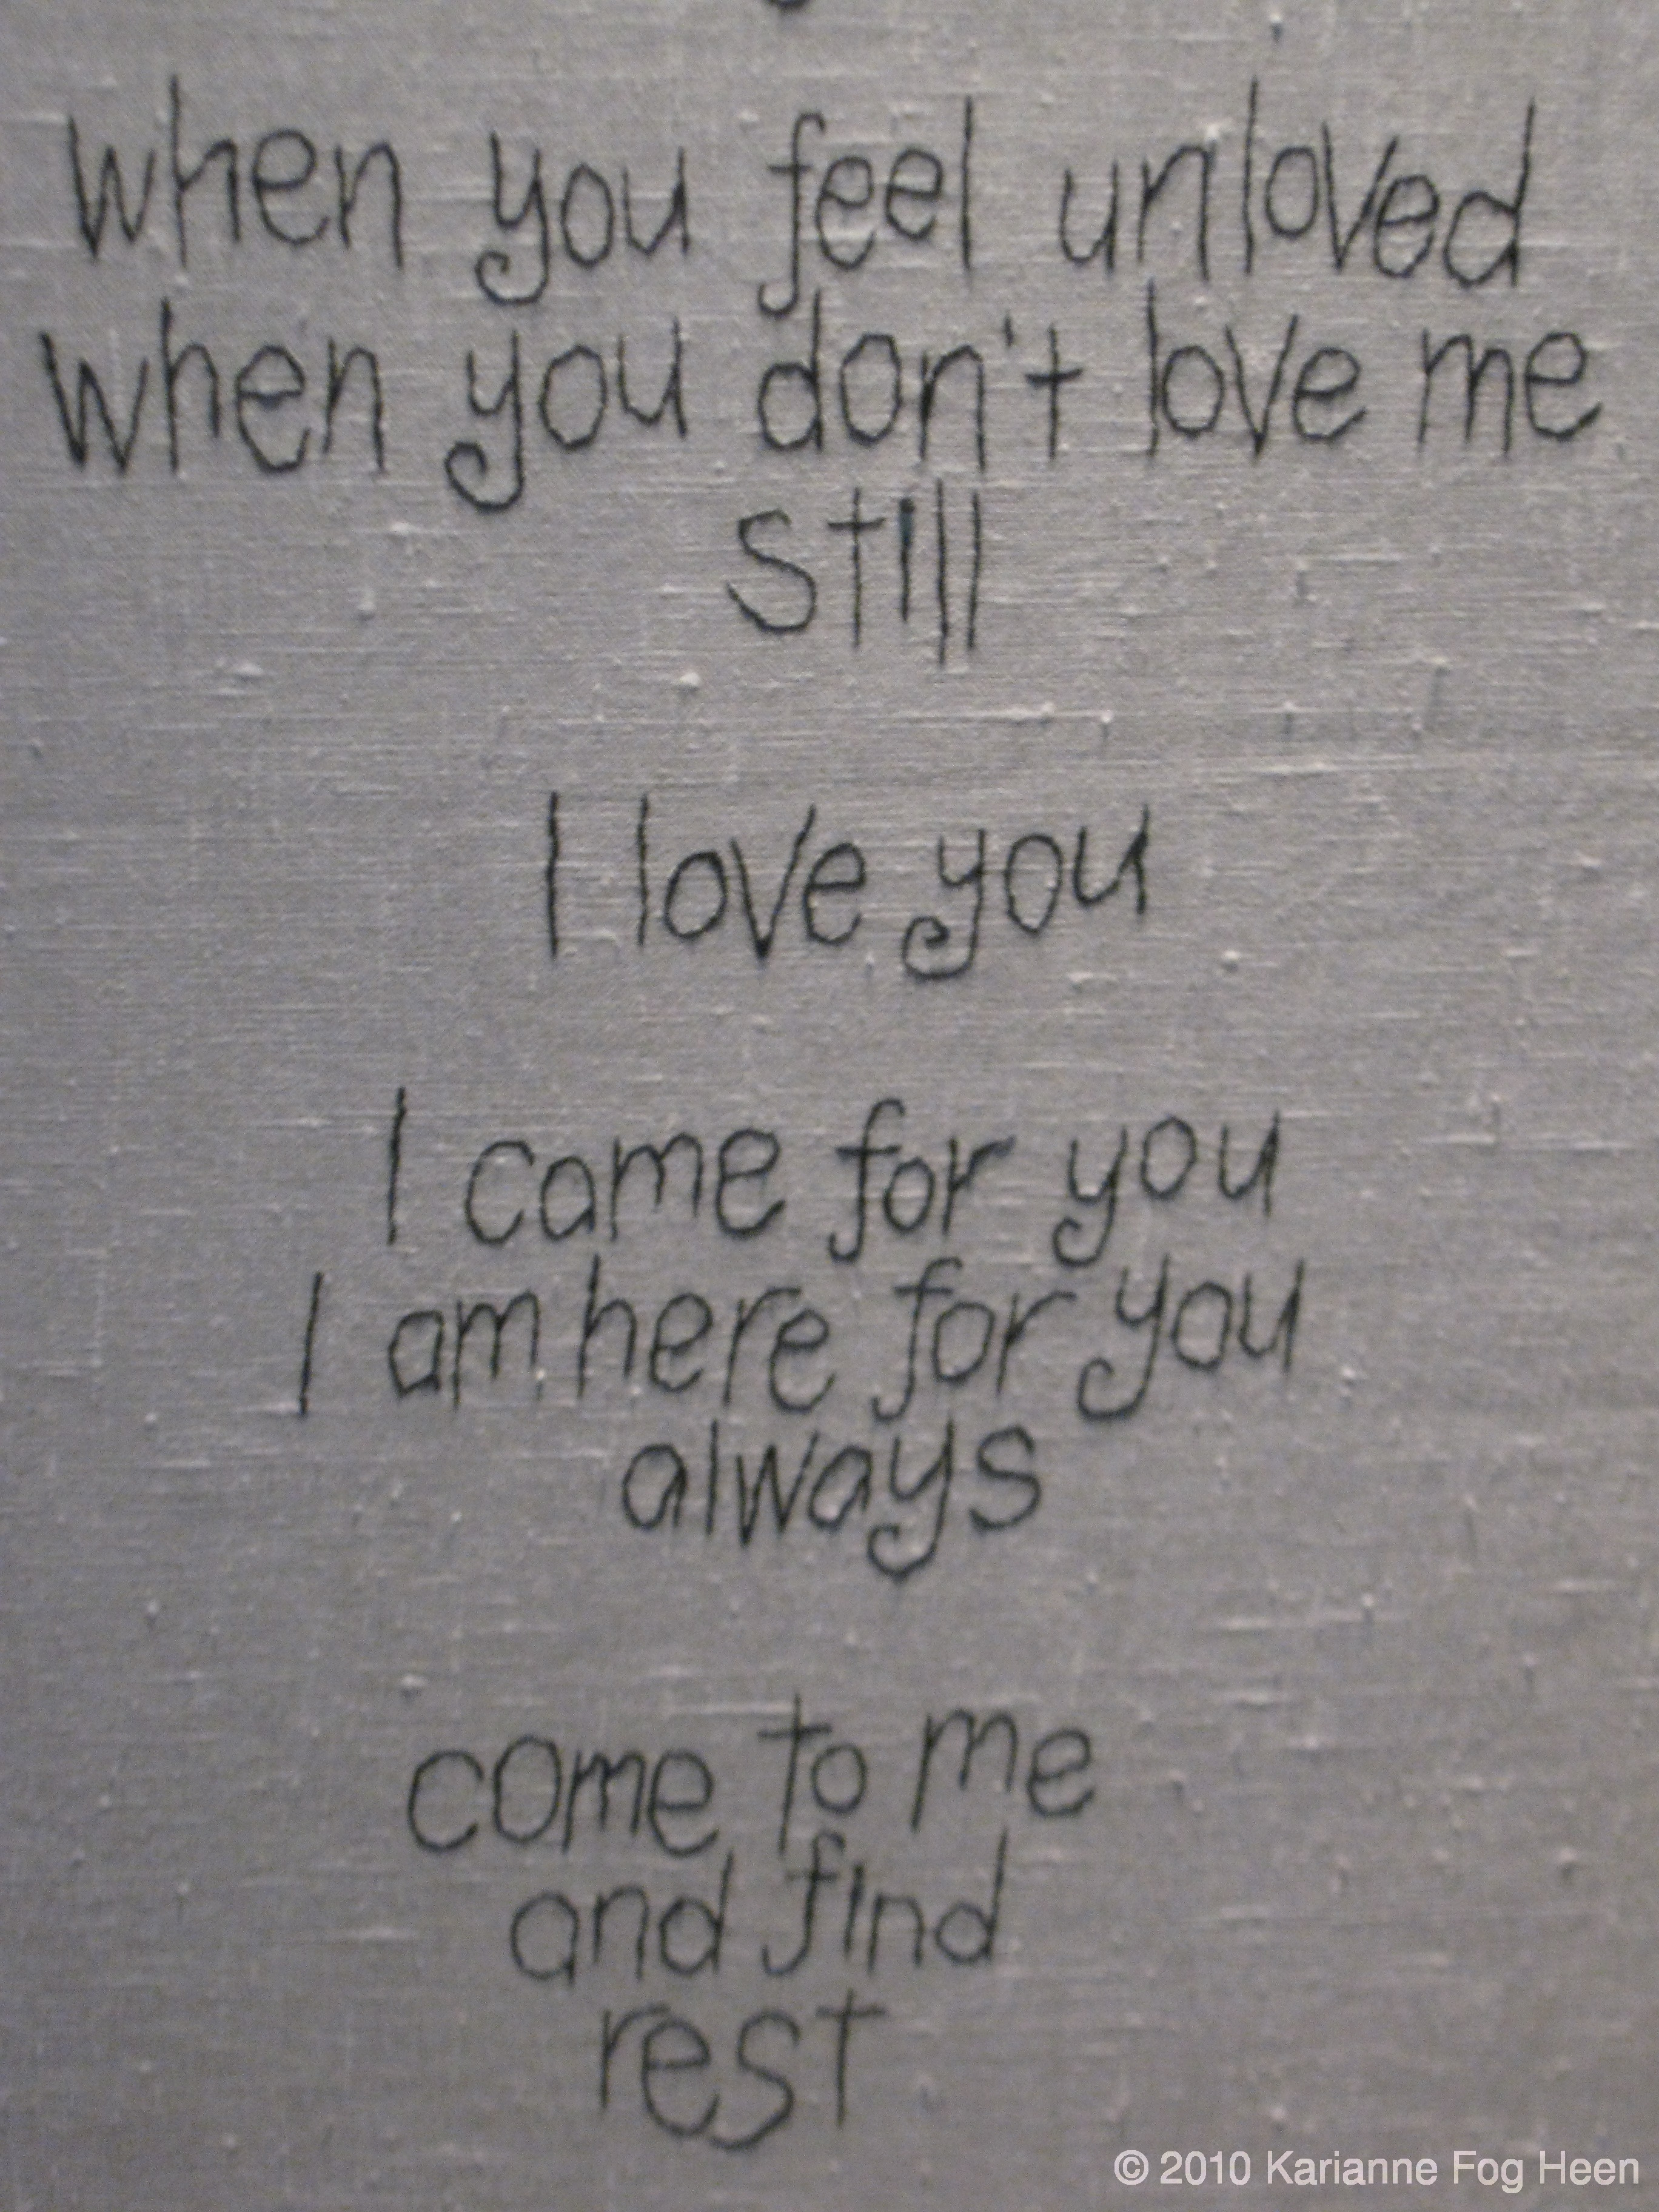 when you feel unloved
when you don't love me
still
I love you
I came for you
I am here for you
always
come to me
and find
rest
© 2010 Karianne Fog Heen